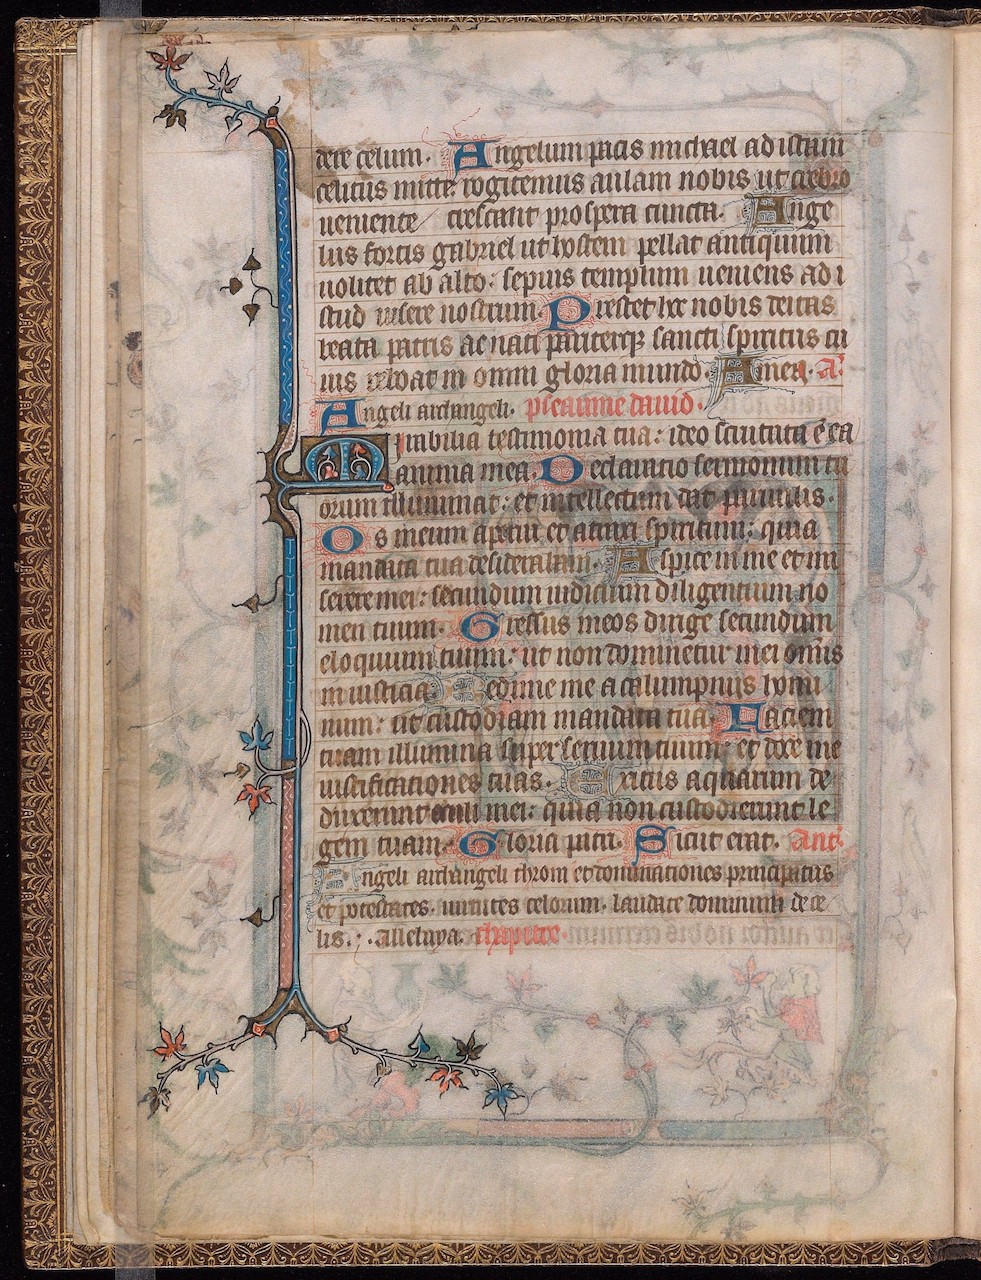 dere celum. Angelum pacis michael ad istam
celitus mitte rogitemus aulam nobis ut crebro
ueniente crescant prospera cuncta. Ange
lus fortis gabriel ut hostem pellat antiquum
uolitet ab alto: sepius templum ueniens ad i
stud uisere nostrum. Prestet hec nobis deitas
beata patris ac nati pariterqȝ sancti spiritus cu
ius reboat in omni gloria mundo. Amen. A.
Angeli archangeli. pseaume dauid.
Mirabilia testimonia tua: ideo scrutata ē ea
anima mea. Declaratio sermonum tu
orum illuminat: et intellectum dat paruulis.
Os meum aperui et atraxi spiritum: quia
mandata tua desiderabam. Aspice in me et mi
serere mei: secundum iudicium diligentium no
men tuum. Gressus meos dirige secundum
eloquium tuum: ut non dominetur mei omīs
iniusticia. Redime me a calumpnijs homi
num: ut custodiam mandata tua. Faciem
tuam illumina super seruum tuum: et doce me
iustificationes tuas. Exitus aquarum de
duxerunt oculi mei: quia non custodierunt le
gem tuam. Gloria patri. Sicut erat. Ant.
Angeli archangeli throni et dominationes principatus
et potestates. uirtutes celorum. laudate dominum de ce
lis. alleluya. chapitre